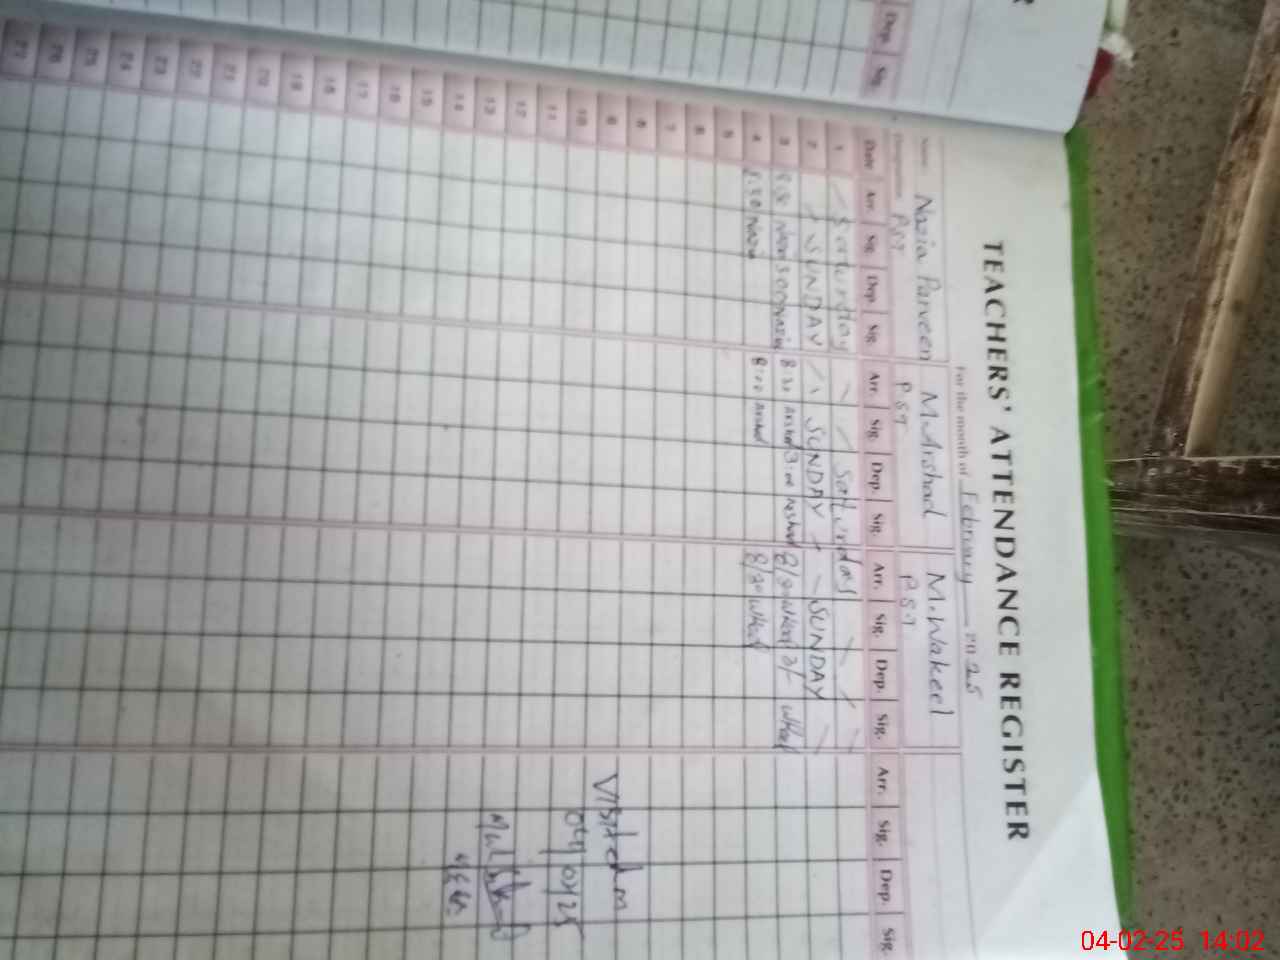 TEACHERS' ATTENDANCE REGISTER
For the month of February 2025
Name Nazia Parveen M.Arshad M.Wakeel
Designation PST PST PST
Date Arr. Sig. Dep. Sig. Arr. Sig. Dep. Sig. Arr. Sig. Dep. Sig. Arr. Sig. Dep. Sig.
1 Saturday Saturday
2 SUNDAY SUNDAY SUNDAY
3 Nazia 3:00 Nazia 8:30 Arshad 3:00 Arshad 8/30 Wkeel 3/ Wkeel
4 8:30 Nazia 8:00 Arshad 8/30 Wkeel
5
6
7
8
9
10
11
12
13
14
15
16
17
18
19
20
21
22
23
24
25
26
27
Visited on
04/02/25
Dep. Sig.
04-02-25 14:02